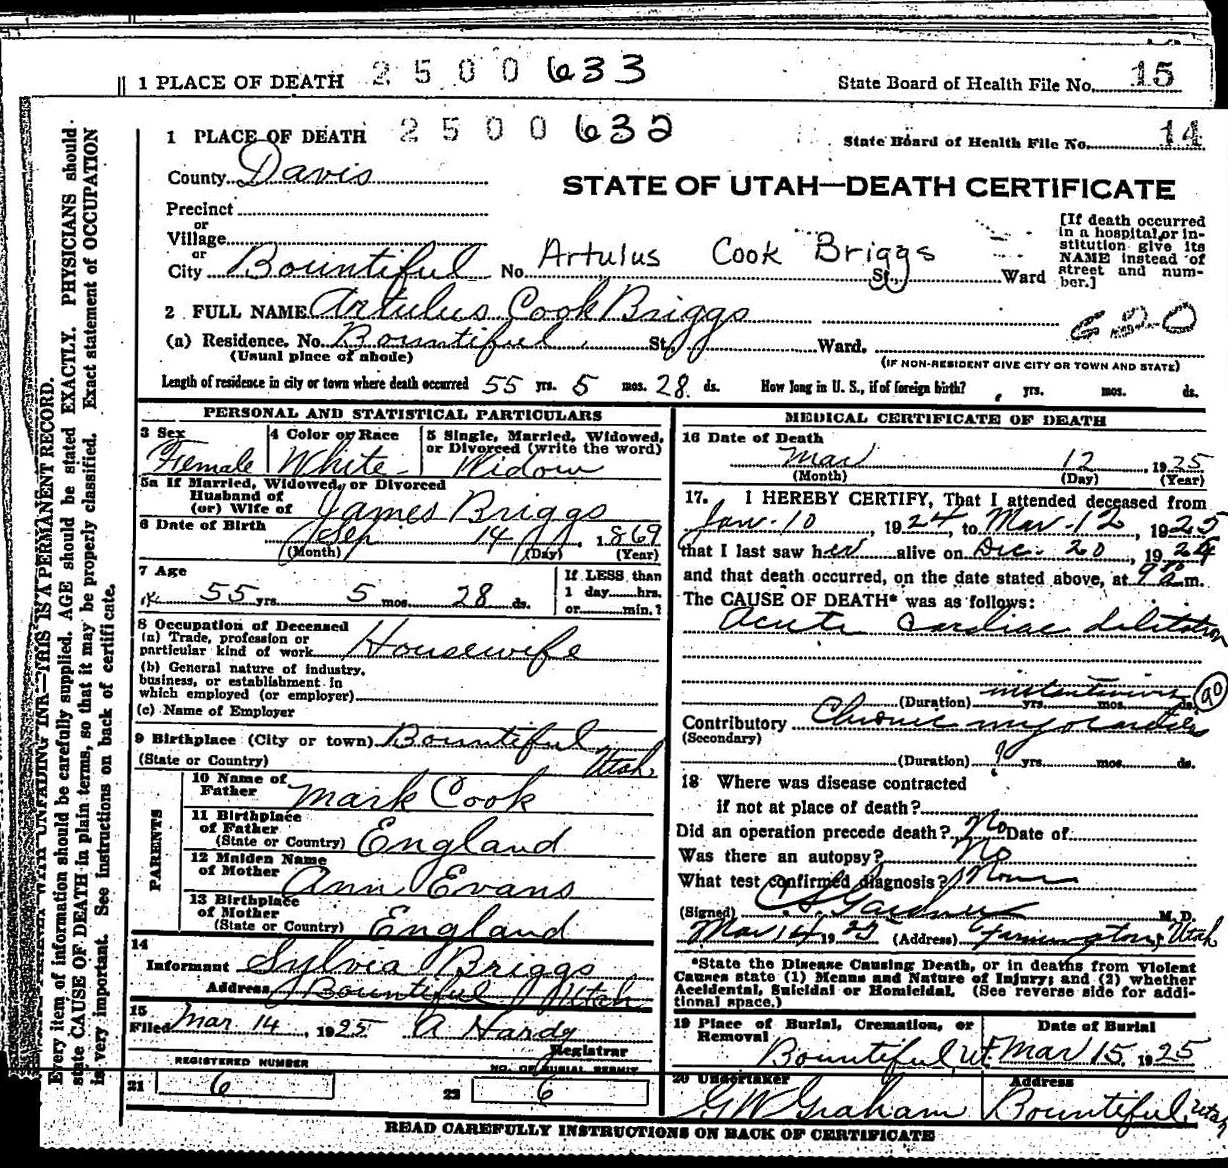 1 PLACE OF DEATH 2500633 State Board of Health File No. 15
1 PLACE OF DEATH 2500632 State Board of Health File No. 14
County Davis
STATE OF UTAH—DEATH CERTIFICATE
Precinct
or
Village
or
City Bountiful No. Artulus Cook Briggs St., Ward
[If death occurred
in a hospital or in-
stitution give its
NAME instead of
street and num-
ber.]
2 FULL NAME Artulus Cook Briggs
(a) Residence. No. Bountiful St., Ward.
(Usual place of abode) (IF NON-RESIDENT GIVE CITY OR TOWN AND STATE)
Length of residence in city or town where death occurred 55 yrs. 5 mos. 28 ds. How long in U. S., if of foreign birth? yrs. mos. ds.
PERSONAL AND STATISTICAL PARTICULARS
3 Sex Female
4 Color or Race White
5 Single, Married, Widowed,
or Divorced (write the word)
Widow
5a If Married, Widowed, or Divorced
Husband of
(or) Wife of James Briggs
6 Date of Birth Sep 14 1869
(Month) (Day) (Year)
7 Age
55 yrs. 5 mos. 28 ds.
If LESS than
1 day hrs.
or min.?
8 Occupation of Deceased
(a) Trade, profession or
particular kind of work Housewife
(b) General nature of industry,
business, or establishment in
which employed (or employer)
(c) Name of Employer
9 Birthplace (City or town) Bountiful,
(State or Country) Utah
PARENTS
10 Name of
Father Mark Cook
11 Birthplace
of Father
(State or Country) England
12 Maiden Name
of Mother Ann Evans
13 Birthplace
of Mother
(State or Country) England
14
Informant Sylvia Briggs
Address Bountiful Utah
15
Filed Mar 14, 1925 A Hardy
Registrar
REGISTERED NUMBER NO. OF BURIAL PERMIT
21 6 22 6
MEDICAL CERTIFICATE OF DEATH
16 Date of Death
Mar 12, 1925
(Month) (Day) (Year)
17. I HEREBY CERTIFY, That I attended deceased from
Jan-10, 1924, to Mar-12, 1925
that I last saw her alive on Dec. 20, 1924
and that death occurred, on the date stated above, at 9 a m.
The CAUSE OF DEATH* was as follows:
Acute Cardiac dilitation
(Duration) yrs. mos. ds. 90
Contributory Chronic myocarditis
(Secondary)
(Duration) yrs. mos. ds.
18 Where was disease contracted
if not at place of death?
Did an operation precede death? No Date of
Was there an autopsy? No
What test confirmed diagnosis? None
(Signed) Gardner M. D.
Mar 14 1925 (Address) Farmington, Utah
*State the Disease Causing Death, or in deaths from Violent
Causes state (1) Means and Nature of Injury; and (2) whether
Accidental, Suicidal or Homicidal. (See reverse side for addi-
tional space.)
19 Place of Burial, Cremation, or
Removal
Bountiful, Ut.
Date of Burial
Mar 15, 1925
20 Undertaker
G W Graham
Address
Bountiful, Utah
READ CAREFULLY INSTRUCTIONS ON BACK OF CERTIFICATE
WITH UNFADING INK—THIS IS A PERMANENT RECORD.
Every item of information should be carefully supplied. AGE should be stated EXACTLY. PHYSICIANS should
state CAUSE OF DEATH in plain terms, so that it may be properly classified. Exact statement of OCCUPATION
is very important. See instructions on back of certificate.